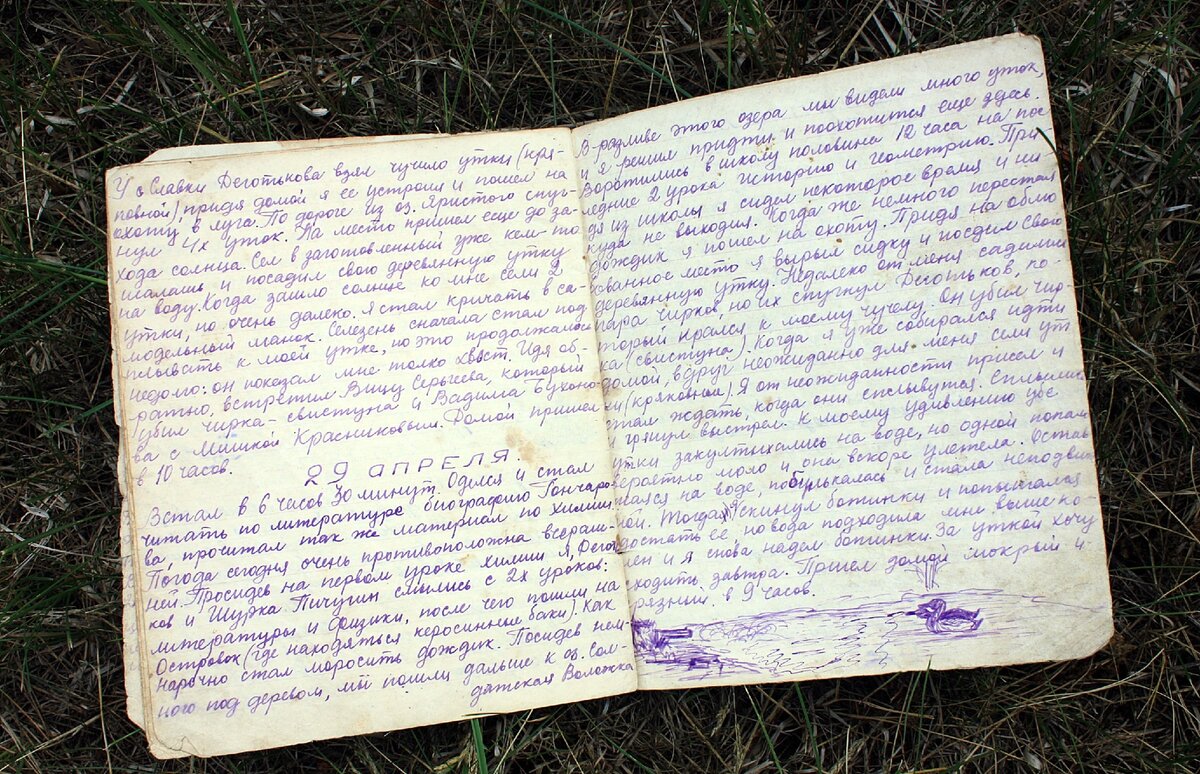 У о Славки Деготькова взял чучило утки (кря-
повной), придя домой я ее устроил и пошел на
охоту в луга. По дороге из оз. Яристого спуг-
нул 4х уток. На место пришел еще до за-
хода солнца. Сел в заготовленный уже кем-то
шалашь, и посадил свою деревянную утку
на воду. Когда зашло солнце ко мне сели 2
утки, но очень далеко. Я стал кричать в са-
модельный манок. Селезень сначала стал под
плывать к моей утке, но это продолжалось
недолго: он показал мне только хвост. Идя об-
ратно, встретил Вицу Сергеева, который
убил чирка-свистуна и Вадима Бухоно-
ва с Мишкой Красниковым. Домой пришел
в 10 часов.
29 АПРЕЛЯ.
Встал в 6 часов 30 минут. Оделся и стал
читать по литературе биографию Гончаро-
ва, прочитал так же материал по химии.
Погода сегодня очень противоположна вчераш-
ней. Просидев на первом уроке химии Я, Дегот
ков и Шурка Пичугин смылись с 2х уроков:
литературы и физики, после чего пошли на
Островок (где находяться керосинные баки). Как
нарочно стал моросить дождик. Посидев нем-
ного под деревом, мы пошли дальше к оз. Сол-
датская Воложка
В разливе этого озера мы видели много уток,
и я решил придти и поохотится еще здесь.
Воротились в школу половина 12 часа на пос
ледние 2 урока историю и геометрию. При-
дя из школы я сидел некоторое время и ни-
куда не выходил. Когда же немного перестал
дождик я пошел на охоту. Придя на облю
бованное место я вырыл сидку и посдил свою
деревянную утку. Недалеко от меня садили
пара чирков, но их спугнул Деготьков, ко-
торый крался к моему чучелу. Он убил чир-
ка (свистуна). Когда я уже собирался идти
домой, вдруг неожиданно для меня сели ут
ки (кряковные). Я от неожиданности присел и
стал ждать, когда они сплывутся. Сплылись
и грянул выстрел. К моему удивлению обе
утки закултыхались на воде, но одной попало
вероятно мало и она вскоре улетела. Остав
шаяся на воде, побурькалась и стала неподвиж
ной. Тогда я скинул ботинки и попытался
достать ее, но вода подходила мне выше ко-
лен и я снова надел ботинки. За уткой хочу
сходить завтра. Пришел домой мокрый и
грязный в 9 часов.